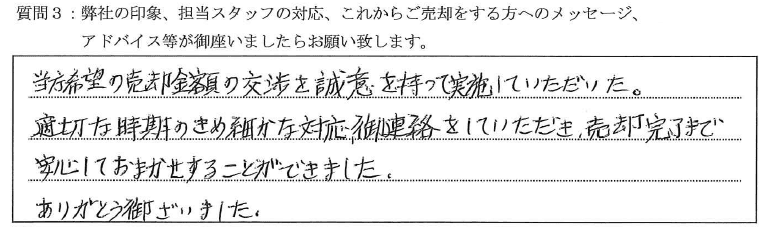 質問3：弊社の印象、担当スタッフの対応、これからご売却をする方へのメッセージ、
アドバイス等が御座いましたらお願い致します。
当方希望の売却金額の交渉を誠意を持って実施していただいた。
適切な時期のきめ細かな対応、御連絡をしていただき、売却完了まで
安心しておまかせすることができました。
ありがとう御ざいました。